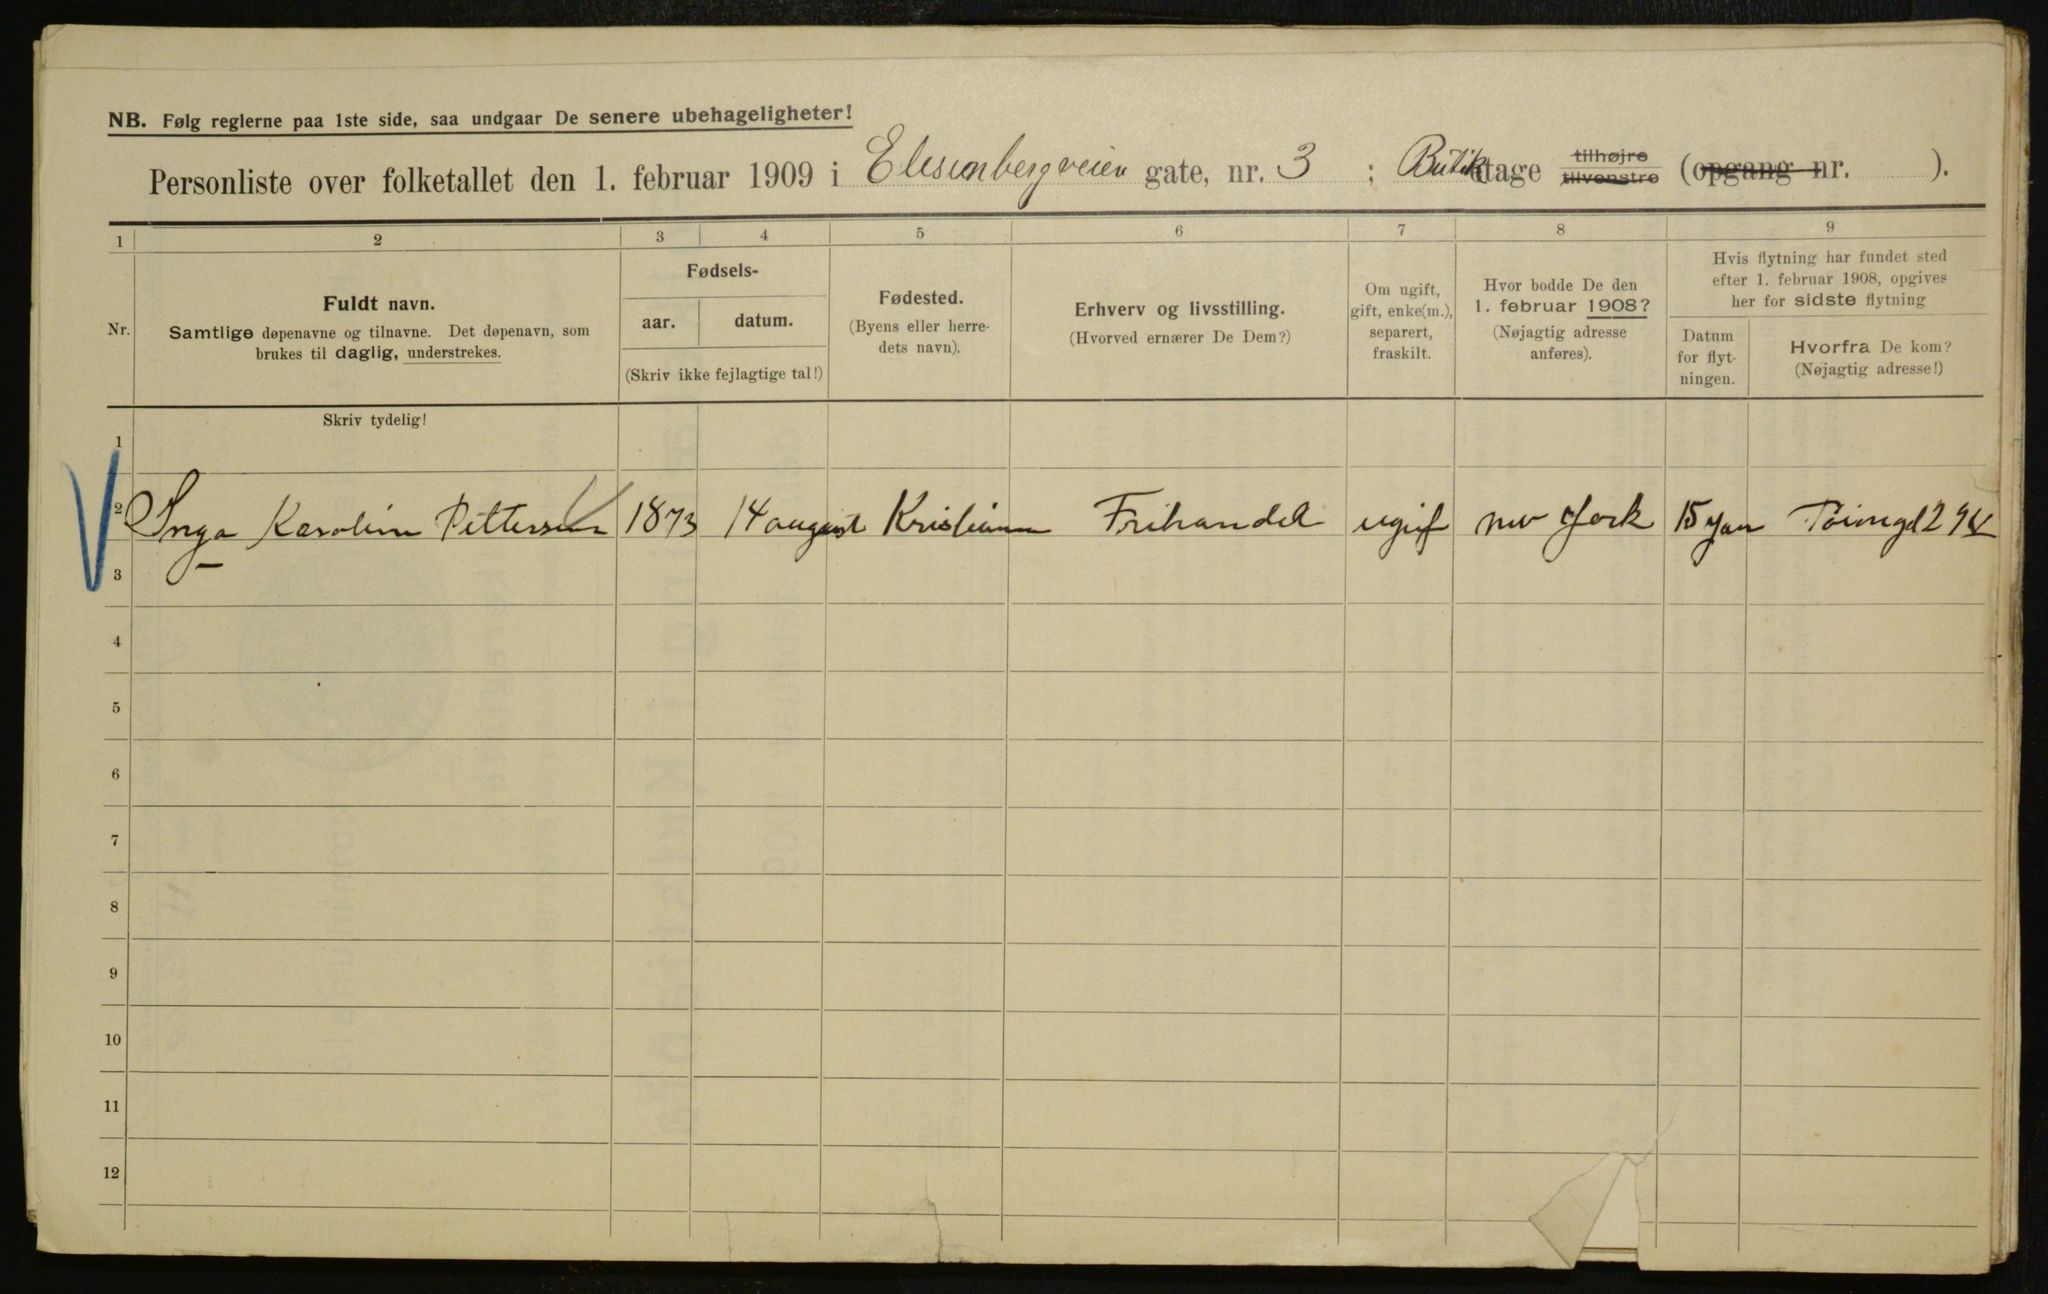 NB. Følg reglerne paa 1ste side, saa undgaar De senere ubehageligheter!
Personliste over folketallet den 1. februar 1909 i Elisenbergveien gate, nr. 3 ; Butik etage tilhøjre tilvenstre (opgang nr. ).
1 2 3 4 5 6 7 8 9
Nr.
Fuldt navn.
Samtlige døpenavne og tilnavne. Det døpenavn, som
brukes til daglig, understrekes.
Fødsels-
aar. datum.
(Skriv ikke fejlagtige tal!)
Fødested.
(Byens eller herre-
dets navn).
Erhverv og livsstilling.
(Hvorved ernærer De Dem?)
Om ugift,
gift, enke(m.),
separert,
fraskilt.
Hvor bodde De den
1. februar 1908?
(Nøjagtig adresse
anføres).
Hvis flytning har fundet sted
efter 1. februar 1908, opgives
her for sidste flytning
Datum
for flyt-
ningen.
Hvorfra De kom?
(Nøjagtig adresse!)
Skriv tydelig!
1
2 Inga Karolin Pettersen 1873 14 august Kristiania Frihandel ugif nev York 15 jan
3
4
5
6
7
8
9
10
11
12